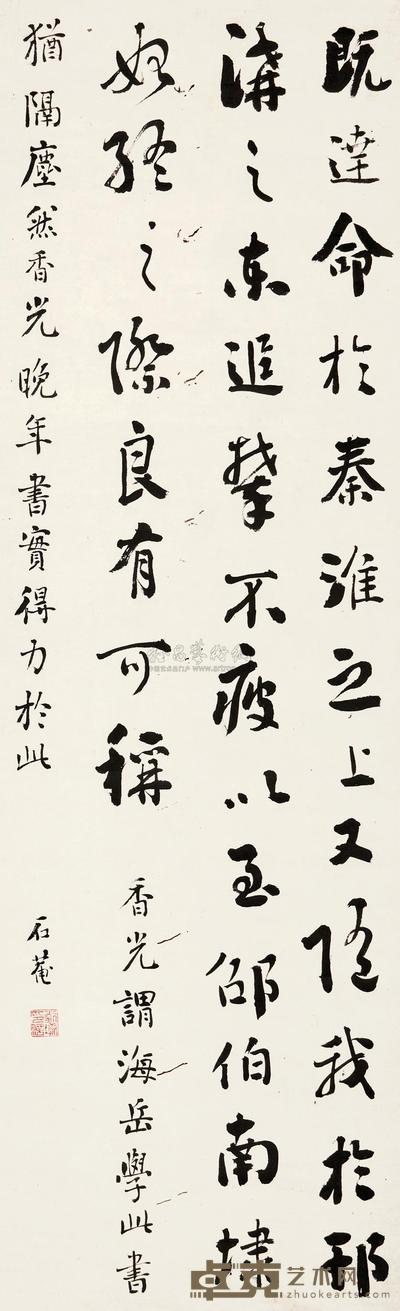 既達命於秦淮之上又隨我於邗
溝之東追攀不疲以至邵伯南埭
始終之際良有可稱
香光謂海岳學此書
猶隔塵然香光晚年書實得力於此
石菴
卓克艺术网
www.zhuokearts.com